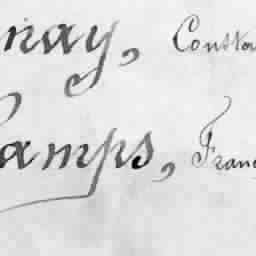 nay, Consta
amps, Franç